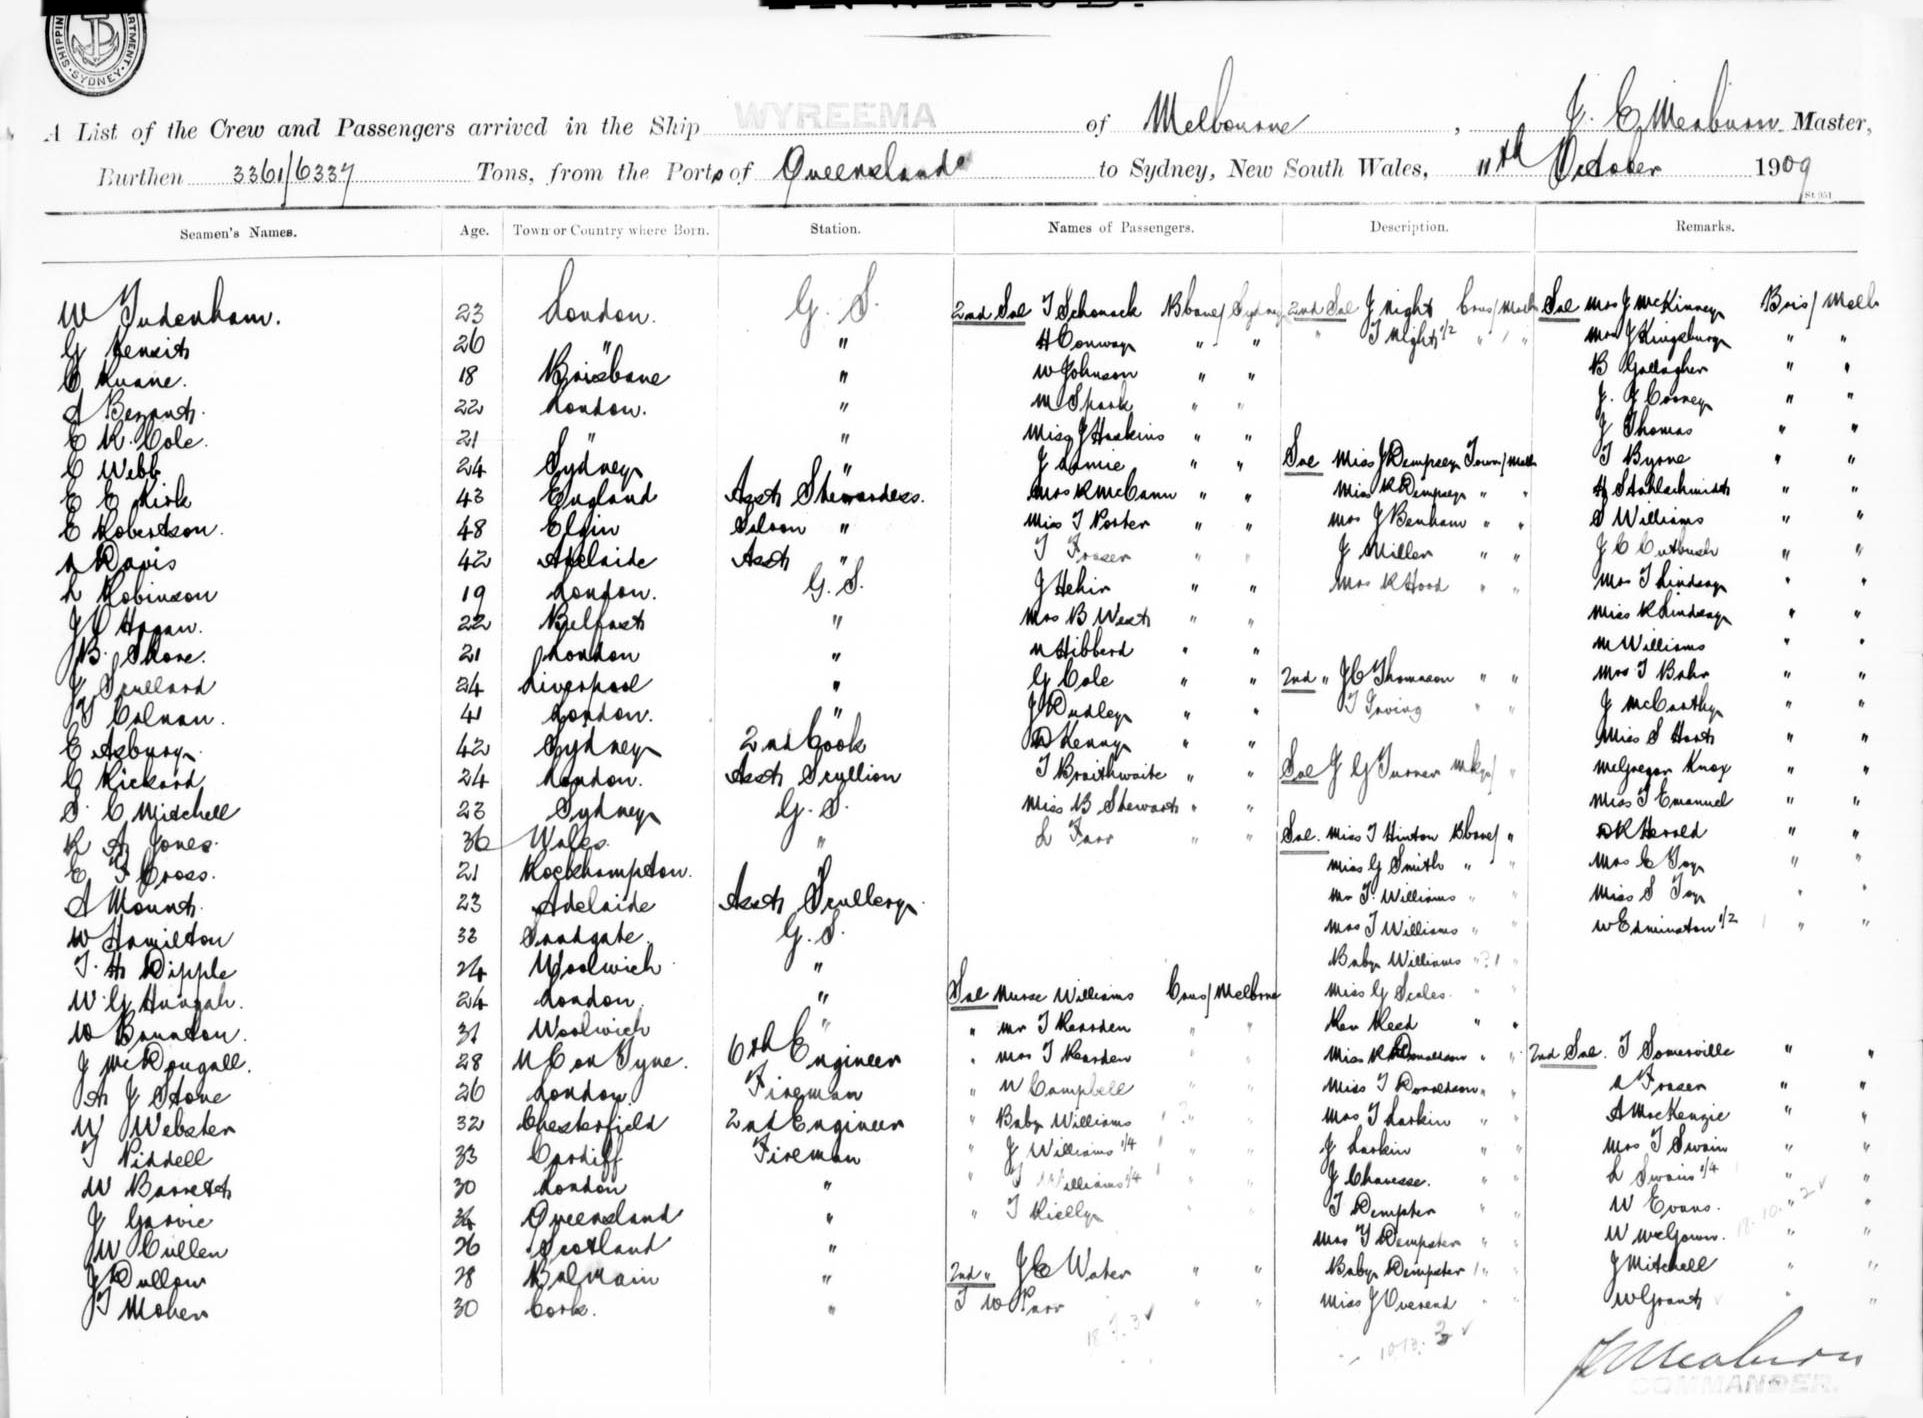 SHIPPING DEPARTMENT. SYDNEY.
A List of the Crew and Passengers arrived in the Ship WYREEMA of Melbourne, J. E. Meaburn Master,
Burthen 3361/6337 Tons, from the Ports of Queensland to Sydney, New South Wales, 11th October 1909
Seamen's Names. Age. Town or Country where Born. Station. Names of Passengers. Description. Remarks.
W Tudenham. 23 London. G. S. 2nd Sal T Schonack Bbane/Sydney 2nd Sal J Night Cns/Melb Sal Mrs J McKinney Bris/Melb
G Hensit 26 " " H Conway " " " T Night 1/2 " / " Mrs J Kingsbury " "
C Ruane. 18 Brisbane " W Johnson " " B Gallagher " "
A Bezant. 22 London. " M Spark " " J. J Cooney " "
E R. Cole. 21 " " Miss J Haskins " " J Thomas " "
C Webb 24 Sydney " J Lamie " " Sal Miss J Dempsey Town/Melb T Byrne " "
E E Kirk 43 England Asst Stewardess. Mrs R McCann " " Miss R Dempsey " " H Stahlschmidt " "
E Robertson. 48 Elgin Saloon " Miss T Porter " " Mrs J Benham " " S Williams " "
A Davis 42 Adelaide Asst " T Fraser " " J Miller " " J C Cutbush " "
L Robinson 19 London. G. S. J Hehir " " Mrs R Hood " " Mrs T Lindsay " "
J C Hogan. 22 Belfast " Mrs B West " " Miss R Lindsay " "
J B. Shore. 21 London " N Hibberd " " M Williams " "
J Scullard 24 Liverpool " G Cole " " 2nd " J C Thomason " " Mrs T Bahr " "
T Colman. 41 London. " J Dudley " " T Irving " " J McCarthy " "
E Asbury. 42 Sydney 2nd Cook D Kenny " " Miss S Hart " "
C Rickard 24 London. Asst Scullion T Braithwaite " " Sal J G Turner Mky/ " McGregor Knox " "
S. C Mitchell 23 Sydney G. S. Miss B Stewart " " Miss T Emanuel " "
R A Jones. 36 Wales. " L Farr " " Sal. Miss T Hinton Bbane/ " D R Herald " "
E F Cross. 21 Rockhampton. Miss G Smith " " Mrs C Toy " "
A Mount. 23 Adelaide Asst Scullery. Mr T. Williams " " Miss S Toy " "
W Hamilton 33 Sandgate. G. S. Mrs T Williams " " W Edminston 1/2 " "
T. H Dipple 24 Woolwich " Baby Williams " "
W. G Hannah. 24 London. " Sal Nurse Williams Cns/Melbrne Miss G Scales. " "
W Bounton. 31 Woolwich " " Mr T Rearden " " Rev Reed " "
J McDougall. 28 N C on Tyne. 6th Engineer " Mrs T Rearden " " Miss R Donaldson " " 2nd Sal. T Somerville " "
A J Stone 26 London. Fireman " W Campbell " " Miss T Donaldson " " A Fraser " "
W Webster 32 Chesterfield 2nd Engineer " Baby Williams " " Mrs T Larkin " " A MacKenzie " "
T Riddell 33 Cardiff Fireman " J Williams 1/4 " " J Larkin " " Mrs T Swain " "
W Barrett 30 London " " T Williams 1/4 " " J Chavesse. " " L Swain 1/4 " "
J Garvie 34 Queensland " " T Kielly " " T Dempster " " W Evans. " "
W Cullen 26 Scotland " Mrs T Dempster " " W McGown. " "
J Dullow 28 Balmain " 2nd " J C Water " " Baby Dempster " " J Mitchell " "
T Moher 30 Cork. " T W Parr " " Miss J Overend " " W Grant " "
J E Meaburn
COMMANDER.